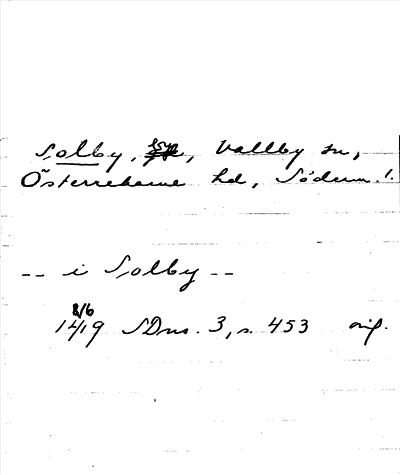 Solby, Vallby sn,
Österrekarne hd, Söderm. l.
-- i Solby --
8/6
1419 SDns. 3, s. 453 orig.